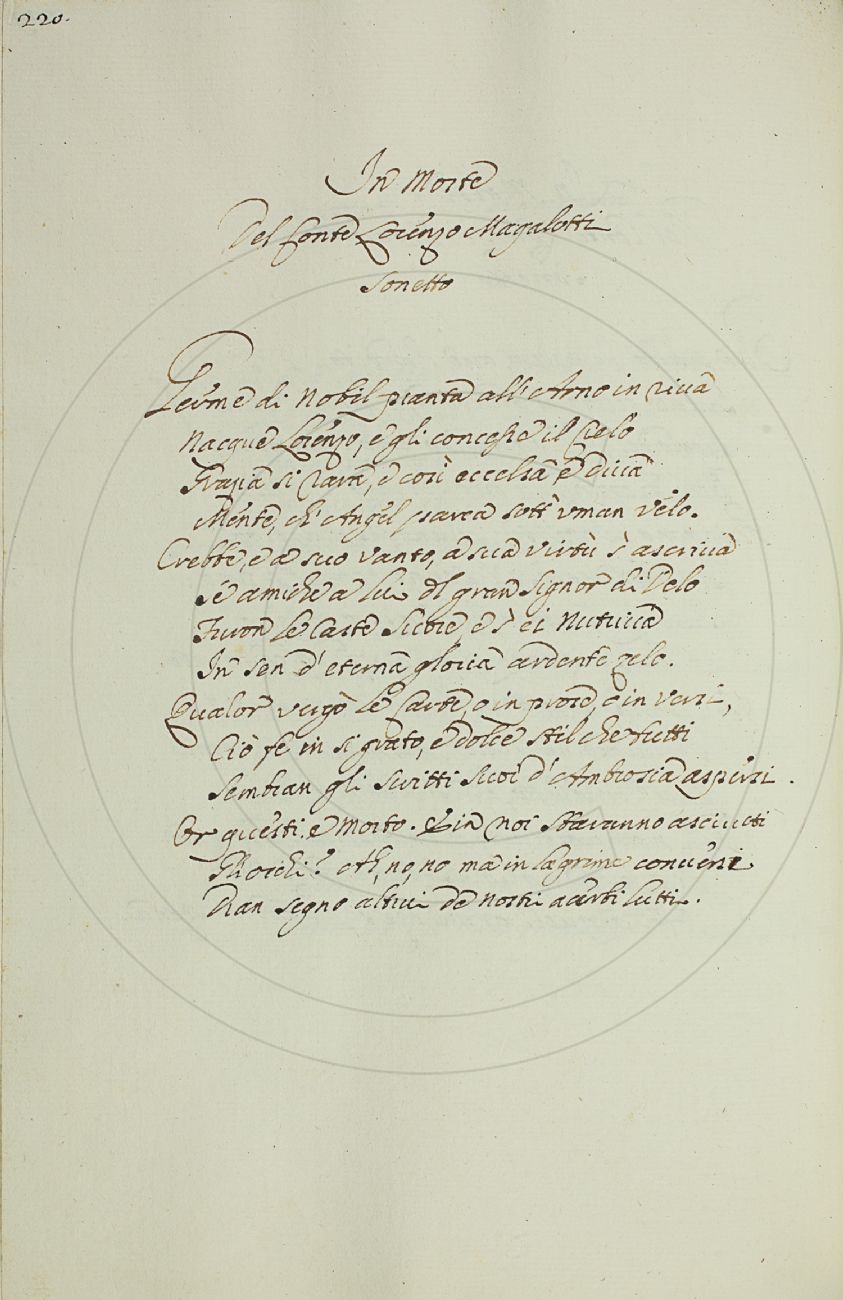 220.
In Morte
Del Conte Lorenzo Magalotti
Sonetto
Germe di Nobil pianta all'Arno in riva
Nacque Lorenzo, e gli concesse il Cielo
Grazia sì rara, e così eccelsa e diva
Mente, ch'Angel parea sott'uman velo.
Crebbe, e a suo vanto, a sua virtù s'ascriva
Se amiche a lui del gran Signor di Delo
Furon le caste Suore, e s'ei nutriva
In sen d'eterna gloria ardente zelo.
Qualor vergò le Carte, o in prose, o in versi,
Ciò fe in sì grato, e dolce stil che tutti
Sembran gli scritti suoi d'Ambrosia aspersi.
Or questi è Morto. E in noi staranno asciutti
Gl'occhi? Ah, no, no ma in lagrime conversi
Dian segno altrui de nostri acerbi lutti.